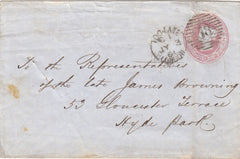 To the Representatives
of the late James Browning
53 Gloucester Terrace
Hyde Park